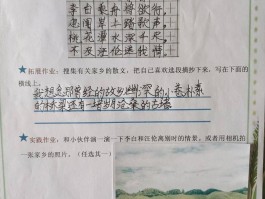 李白乘舟将欲行,
忽闻岸上踏歌声。
桃花潭水深千尺,
不及汪伦送我情。
★拓展作业：搜集有关家乡的散文，把自己喜欢选段摘抄下来，写在下面的
横线上。
我想念那
的故乡幽深的小巷
的
还有一堵
的古墙
★实践作业：和小伙伴演一演一下李白和汪伦离别时的情景。或者用相机拍
一张家乡的照片。（任选其一）